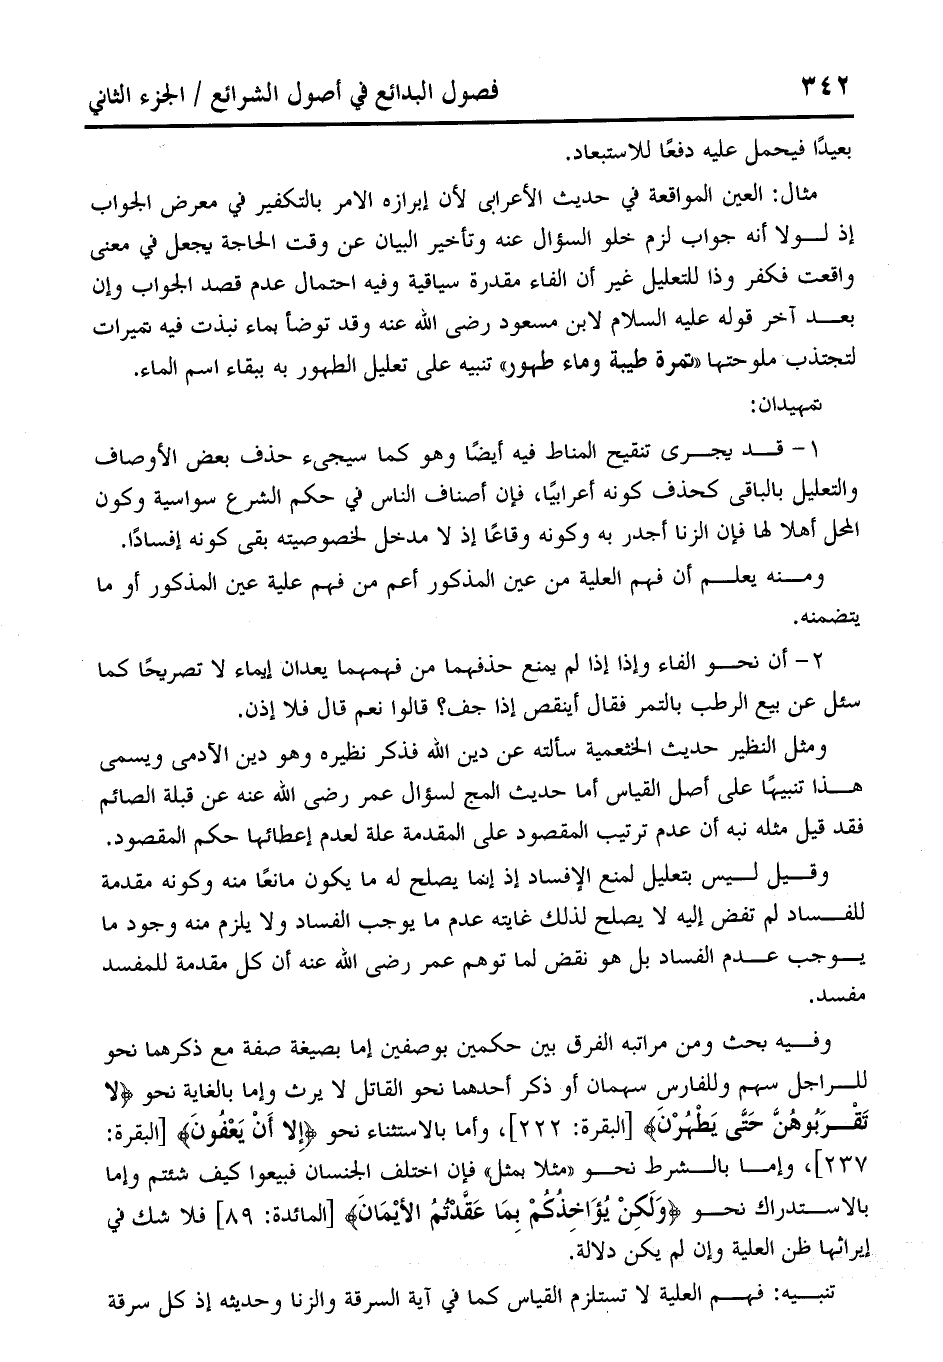 ٣٤٢ فصول البدائع في أصول الشرائع / الجزء الثاني
بعيدًا فيحمل عليه دفعًا للاستبعاد.
مثال: العين المواقعة في حديث الأعرابى لأن إبرازه الامر بالتكفير في معرض الجواب
إذ لولا أنه جواب لزم خلو السؤال عنه وتأخير البيان عن وقت الحاجة يجعل في معنى
واقعت فكفر وذا للتعليل غير أن الفاء مقدرة سياقية وفيه احتمال عدم قصد الجواب وإن
بعد آخر قوله عليه السلام لابن مسعود رضى الله عنه وقد توضأ بماء نبذت فيه تميرات
لتجتذب ملوحتها «تمرة طيبة وماء طهور» تنبيه على تعليل الطهور به ببقاء اسم الماء.
تمهيدان:
١- قد يجرى تنقيح المناط فيه أيضًا وهو كما سيجىء حذف بعض الأوصاف
والتعليل بالباقى كحذف كونه أعرابيًا، فإن أصناف الناس في حكم الشرع سواسية وكون
المحل أهلا لها فإن الزنا أجدر به وكونه وقاعًا إذ لا مدخل لخصوصيته بقى كونه إفسادًا.
ومنه يعلم أن فهم العلية من عين المذكور أعم من فهم علية عين المذكور أو ما
يتضمنه.
٢- أن نحو الفاء وإذا إذا لم يمنع حذفهما من فهمهما يعدان إيماء لا تصريحًا كما
سئل عن بيع الرطب بالتمر فقال أينقص إذا جف؟ قالوا نعم قال فلا إذن.
ومثل النظير حديث الخثعمية سألته عن دين الله فذكر نظيره وهو دين الآدمى ويسمى
هذا تنبيهًا على أصل القياس أما حديث المج لسؤال عمر رضى الله عنه عن قبلة الصائم
فقد قيل مثله نبه أن عدم ترتيب المقصود على المقدمة علة لعدم إعطائها حكم المقصود.
وقيل ليس بتعليل لمنع الإفساد إذ إنما يصلح له ما يكون مانعًا منه وكونه مقدمة
للفساد لم تفض إليه لا يصلح لذلك غايته عدم ما يوجب الفساد ولا يلزم منه وجود ما
يوجب عدم الفساد بل هو نقض لما توهم عمر رضى الله عنه أن كل مقدمة للمفسد
مفسد.
وفيه بحث ومن مراتبه الفرق بين حكمين بوصفين إما بصيغة صفة مع ذكرهما نحو
للراجل سهم وللفارس سهمان أو ذكر أحدهما نحو القاتل لا يرث وإما بالغاية نحو ﴿لا
تَقْرَبُوهُنَّ حَتَّى يَطْهُرْنَ﴾ [البقرة: ٢٢٢]، وأما بالاستثناء نحو ﴿إِلا أَنْ يَعْفُونَ﴾ [البقرة:
٢٣٧]، وإما بالشرط نحو «مثلا بمثل» فإن اختلف الجنسان فبيعوا كيف شئتم وإما
بالاستدراك نحو ﴿وَلَكِنْ يُؤَاخِذُكُمْ بِمَا عَقَّدْتُمُ الأَيْمَانَ﴾ [المائدة: ٨٩] فلا شك في
إيراثها ظن العلية وإن لم يكن دلالة.
تنبيه: فهم العلية لا تستلزم القياس كما في آية السرقة والزنا وحديثه إذ كل سرقة